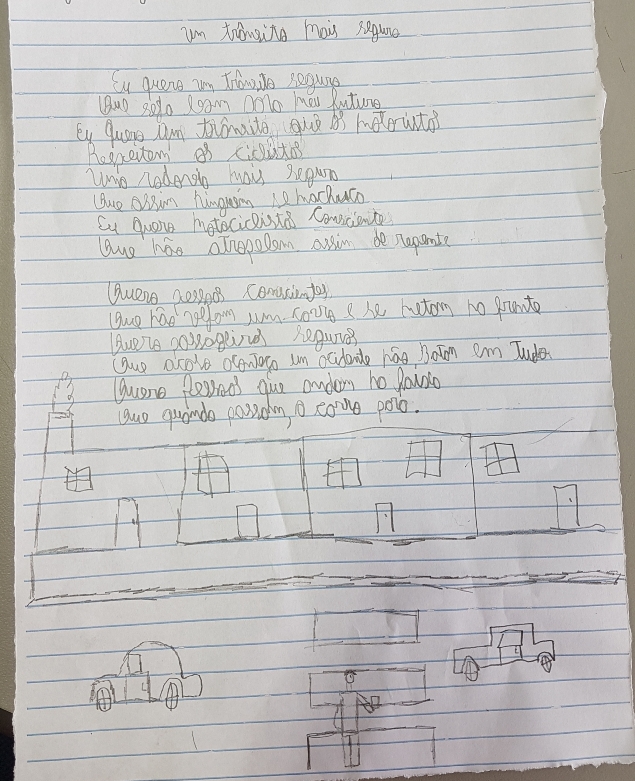 Um trânsito mais seguro
Eu quero um trânsito seguro
Que seja bom para meu futuro
Eu quero um trânsito, que os motoristas
Respeitem os ciclistas
Uma rodando mais segura
Que assim ninguém se machuca
Eu quero motociclistas consciente
Que não atropelem assim de repente
Quero pessoas conscientes
Que não vejam um carro e se metam na frente
Quero passageiros seguros
Que acaso aconteça um acidante não batam em tudo
Quero pessoas que andam na faixa
Que quando passam, o carro para.